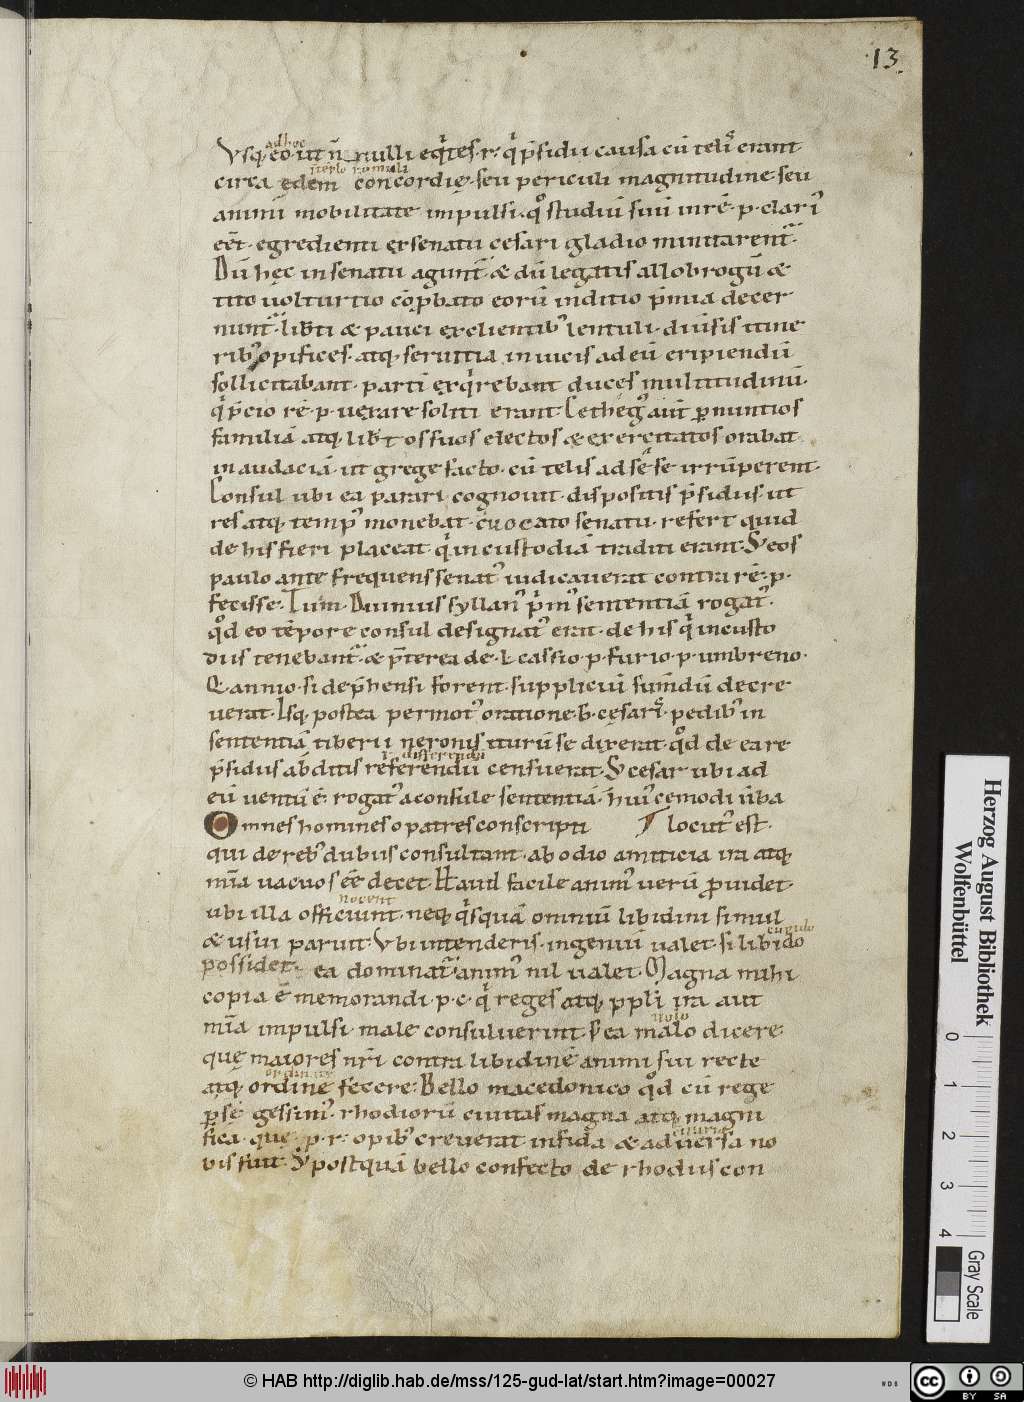 13.
ad hoc
Vsq; eo ut n̄ nulli eq̇tes .r. q̇ p̄sidii causa cū teliˢ erant
templo romuli
circa ędem concordię. seu periculi magnitudine. seu
animi mobilitate impulsi. qͦ studiū suū in rē .p. clariꝰ
eēt. egredienti ex senatu cesari gladio minitarent᷑.
Dū hęc in senatu agunt᷑ & dū legatis allobrogū &
tito uolturtio cōp̄bato eorū inditio p̄mia decer
nunt᷑. lib̄ti & pauci ex clientibꝰ lentuli. diu̅sis itine
ribꝰ opifices. atq; seruitia in uicis ad eū eripiendū
sollicitabant. partī exq̇rebant duces multitudinū.
q̇ p̄cio rē .p. uexare soliti erant. Cethegꝰ aūt ꝑ nuntios
familiā atq; lib̄tos suos electos & exercitatos orabat
in audaciā. ut grege facto. cū telis ad sese irrūperent.
Consul ubi ea parari cognouit. dispositis p̄sidiis. ut
res atq; tempꝰ monebat. cuocato senatu. refert quid
de his fieri placeat. q̇ in custodiā traditi erant. S; eos
paulo ante frequens senatꝰ iudicauerat contra rē .p.
fecisse. Tum. D. iunius syllanꝰ ṗmꝰ sententiā rogatꝰ.
qͦd eo tēpore consul designatꝰ erat. de his q̇ in custo
diis tenebant᷑. & p̄terea de .L. cassio .p. furio .p. umbreno.
Q. annio. si dep̄hensi forent. suppliciū sum̄dū decre
uerat. Isq; postea permotꝰ oratione .G. cęsariˢ. pedibꝰ in
sententiā tiberii neronis iturū se dixerat. qͦd de ea re
differendū
p̄sidiis abditis referendū censuerat. S; cesar ubi ad
eū uentū ē. rogatꝰ a consule sententiā. h̄uiꝰcemodi u̅ba
Omnes homines o patres conscripti locutꝰ est.
qui de rebꝰ dubiis consultant. ab odio amiticia ira atq;
mīa uacuos eē decet. Haud facile animꝰ uerū ꝓuidet.
nocent
ubi illa officiunt. neq; q̇squā omniū libidini simul
& usui paruit. Vbi intenderis. ingeniū ualet. si libido
cupido
possidet. ea dominat᷑. animꝰ nil ualet. Magna mihi
copia ē memorandi .p.c. q̇ reges atq; ppl̄i ira aut
mīa impulsi. male consuluerint. S; ea malo dicere
uolo
quę maiores nr̄i contra libidinē animi sui recte
atq; ordine fecere. Bello macedonico qͦd cū rege
ꝑsę gessimꝰ. rhodiorū ciuitas magna atq; magni
fica. quę .p.r. opibꝰ creuerat infida & aduersa no
bis fuit. S; postquā bello confecto de rhodiis con
Herzog August Bibliothek
Wolfenbüttel
0 1 2 3 4
Gray Scale
© HAB http://diglib.hab.de/mss/125-gud-lat/start.htm?image=00027
WDB
cc BY SA